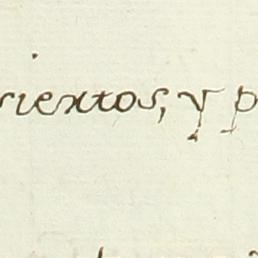 rientos, y p